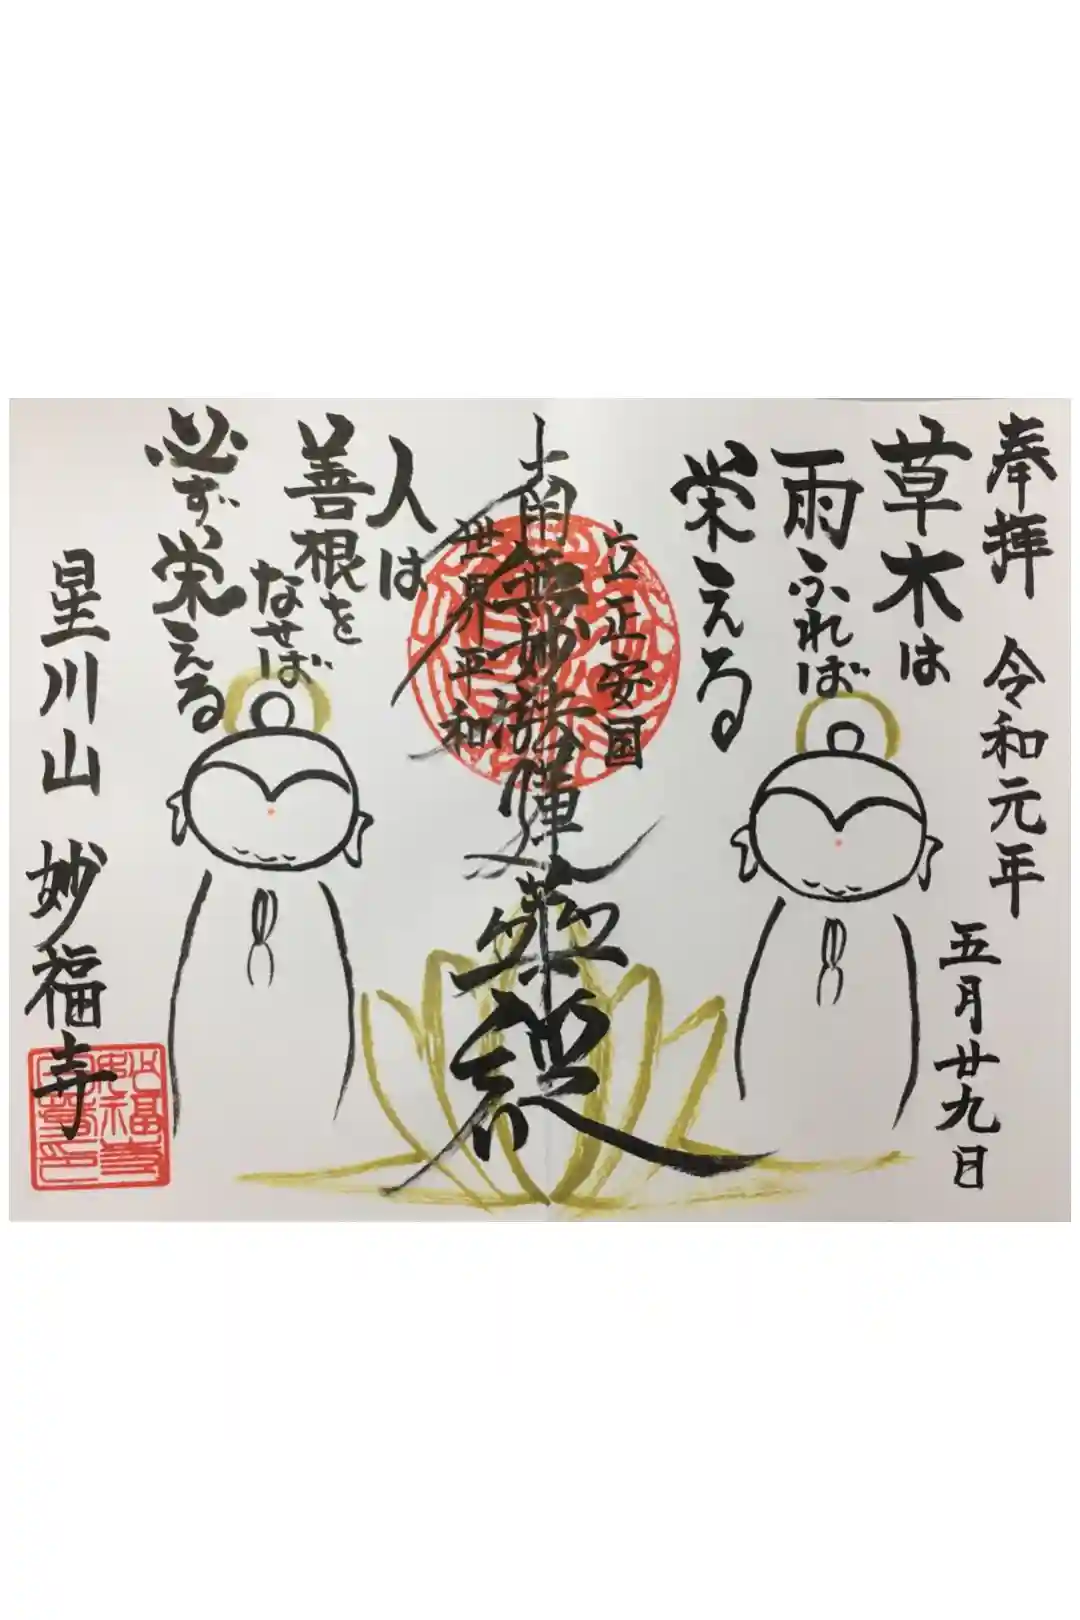 奉拝 令和元年
五月廿九日
草木は
雨ふれば
栄える
立正安国
南無妙法蓮華経
世界平和
人は
善根を
なせば
必ず栄える
星川山 妙福寺